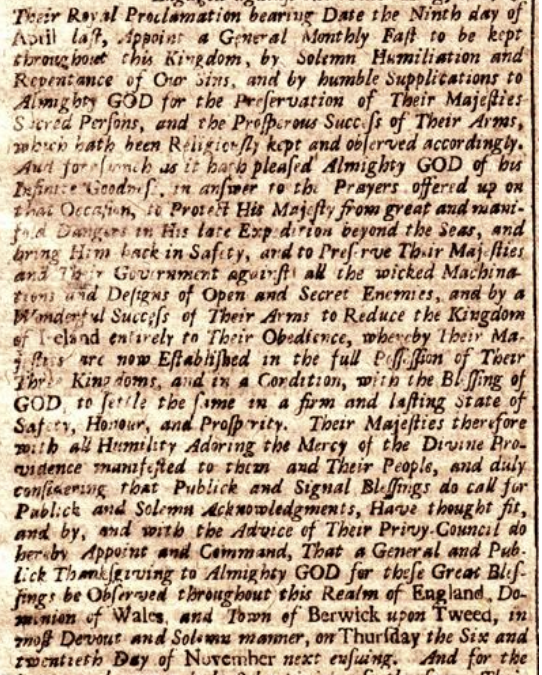 Their Royal Proclamation bearing Date the Ninth day of
April laſt, Appoint a General Monthly Faſt to be kept
throughout this Kingdom, by Solemn Humiliation and
Repentance of Our Sins, and by humble Supplications to
Almighty GOD for the Preſervation of Their Majeſties
Sacred Perſons, and the Proſperous Succeſs of Their Arms,
which hath been Religiouſly kept and obſerved accordingly.
And foraſmuch as it hath pleaſed Almighty GOD of his
Infinite Goodneſs, in anſwer to the Prayers offered up on
that Occaſion, to Protect His Majeſty from great and mani-
fold Dangers in His late Expedition beyond the Seas, and
bring Him back in Safety, and to Preſerve Their Majeſties
and Their Government againſt all the wicked Machina-
tions and Deſigns of Open and Secret Enemies, and by a
Wonderful Succeſs of Their Arms to Reduce the Kingdom
of Ireland entirely to Their Obedience, whereby Their Ma-
jeſties are now Eſtabliſhed in the full Poſſeſſion of Their
Three Kingdoms, and in a Condition, with the Bleſſing of
GOD, to ſettle the ſame in a firm and laſting State of
Safety, Honour, and Proſperity. Their Majeſties therefore
with all Humility Adoring the Mercy of the Divine Pro-
vidence manifeſted to them and Their People, and duly
conſidering that Publick and Signal Bleſſings do call for
Publick and Solemn Acknowledgments, Have thought fit,
and by, and with the Advice of Their Privy-Council do
hereby Appoint and Command, That a General and Pub-
lick Thankſgiving to Almighty GOD for theſe Great Bleſ-
ſings be Obſerved throughout this Realm of England, Do-
minion of Wales, and Town of Berwick upon Tweed, in
moſt Devout and Solemn manner, on Thurſday the Six and
twentieth Day of November next enſuing. And for the